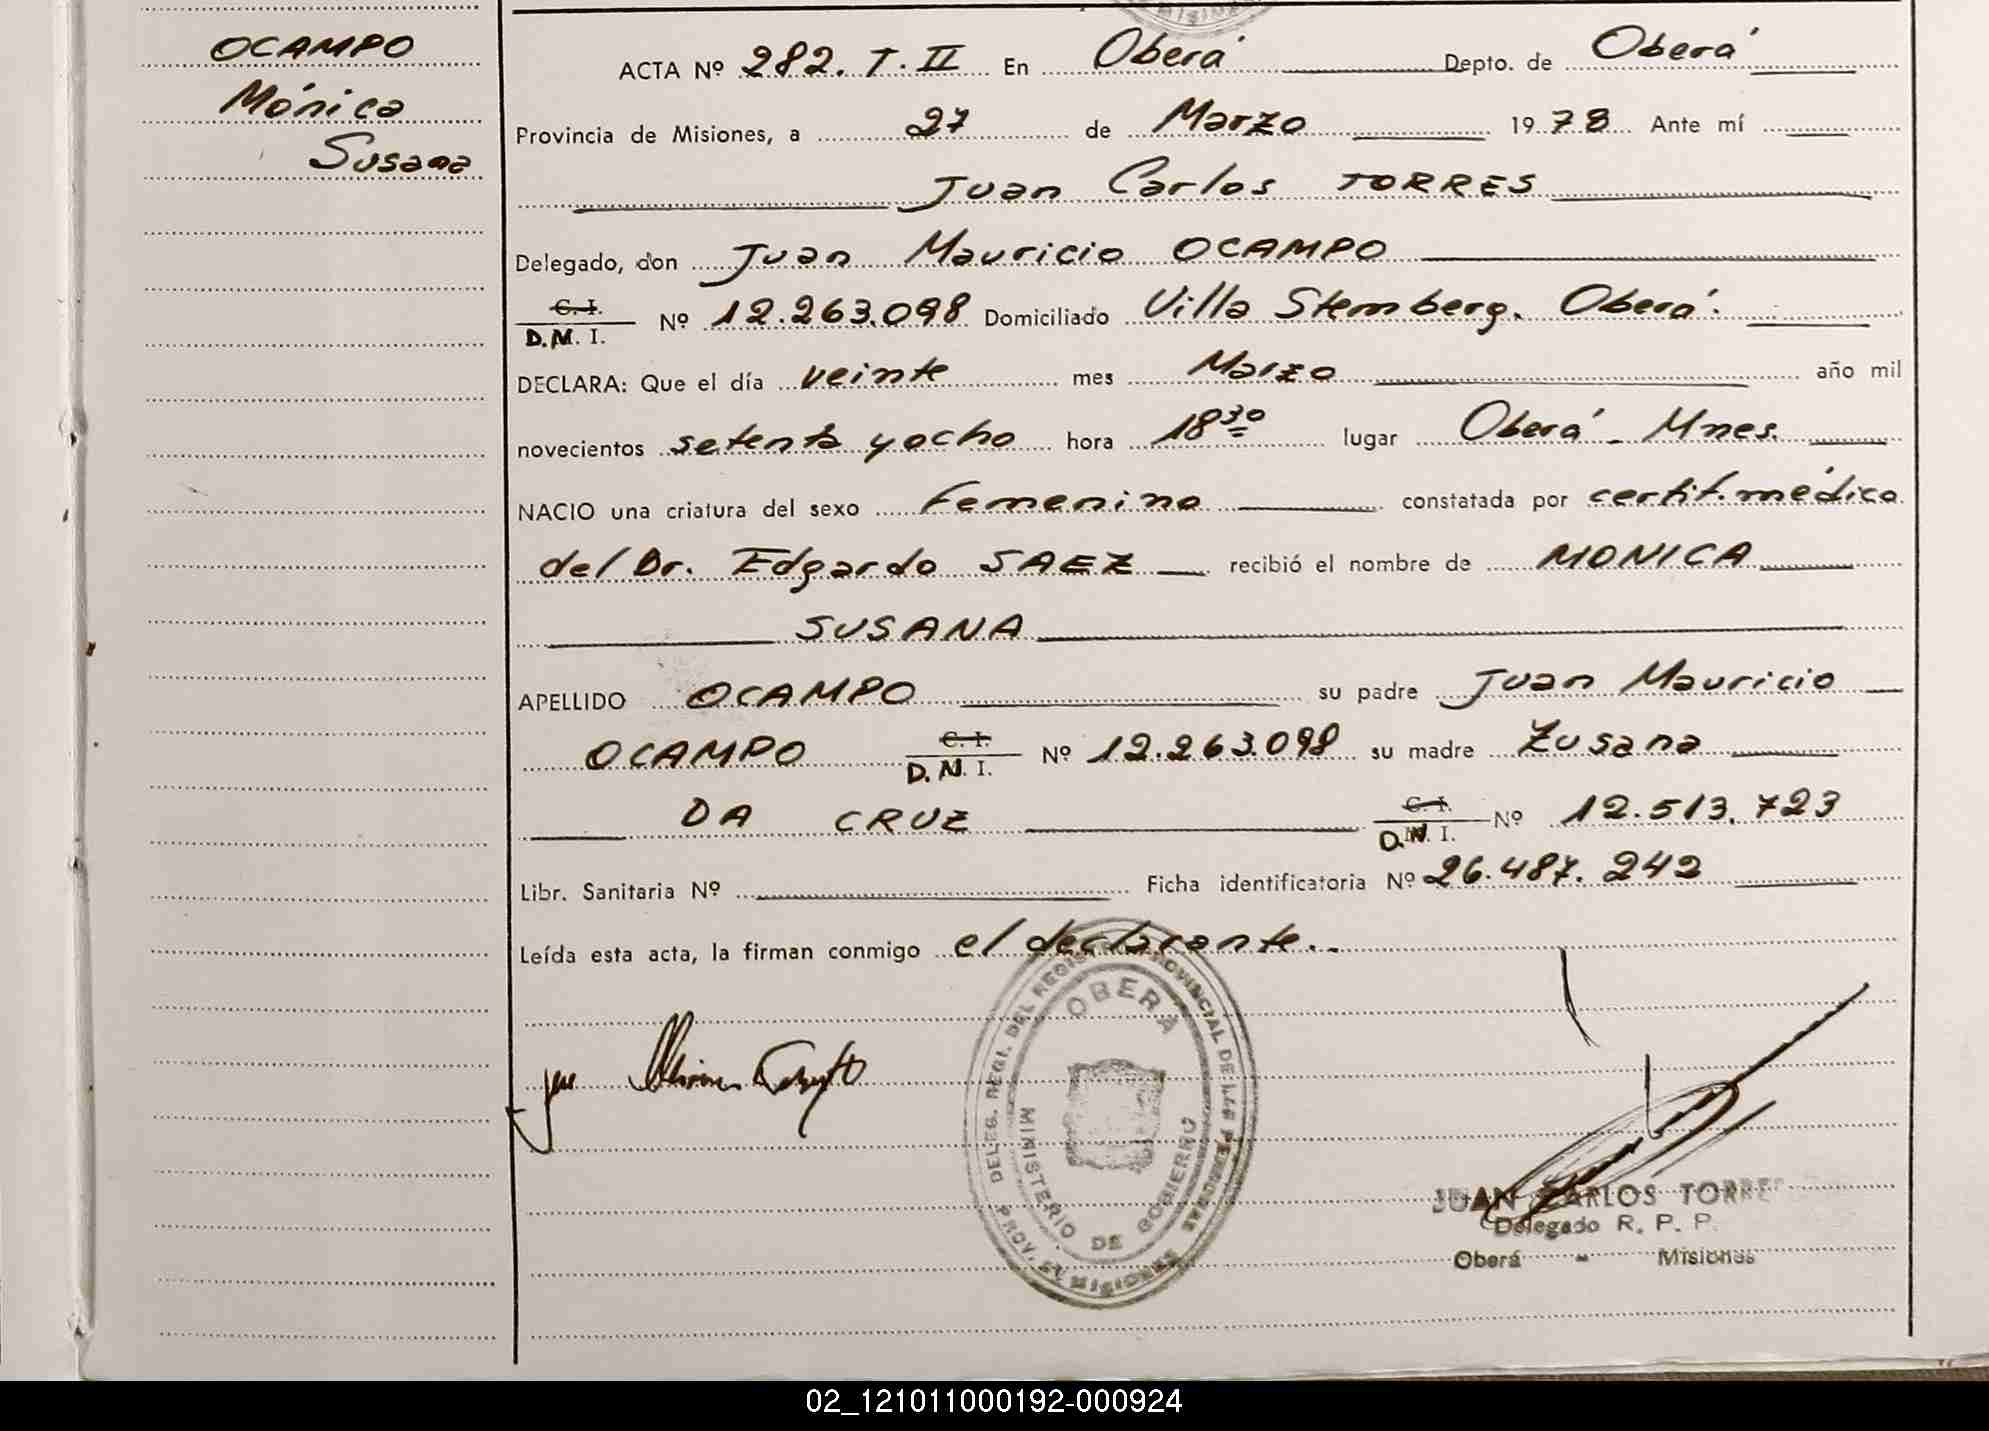 OCAMPO
Mónica
Susana
ACTA Nº 282. T. II En Oberá Depto. de Oberá
Provincia de Misiones, a 27 de Marzo 1978 Ante mí
Juan Carlos TORRES
Delegado, don Juan Mauricio OCAMPO
C. I.
D. N. I. Nº 12.263.098 Domiciliado Villa Stemberg. Oberá.
DECLARA: Que el día veinte mes Marzo año mil
novecientos setenta y ocho hora 18 30 lugar Oberá - Mnes.
NACIO una criatura del sexo Femenino constatada por certif. médico
del Dr. Edgardo SAEZ recibió el nombre de MONICA
SUSANA
APELLIDO OCAMPO su padre Juan Mauricio
OCAMPO C. I. D. N. I. Nº 12.263.098 su madre Zusana
DA CRUZ C. I. D. N. I. Nº 12.513.723
Libr. Sanitaria Nº Ficha identificatoria Nº 26.487.242
Leída esta acta, la firman conmigo el declarante..
DELEG. REGI. DEL REGISTRO PROVINCIAL DE LAS PERSONAS
OBERÁ
MINISTERIO DE GOBIERNO
PROV. DE MISIONES
JUAN CARLOS TORRES
Delegado R. P. P.
Oberá - Misiones
02_121011000192-000924